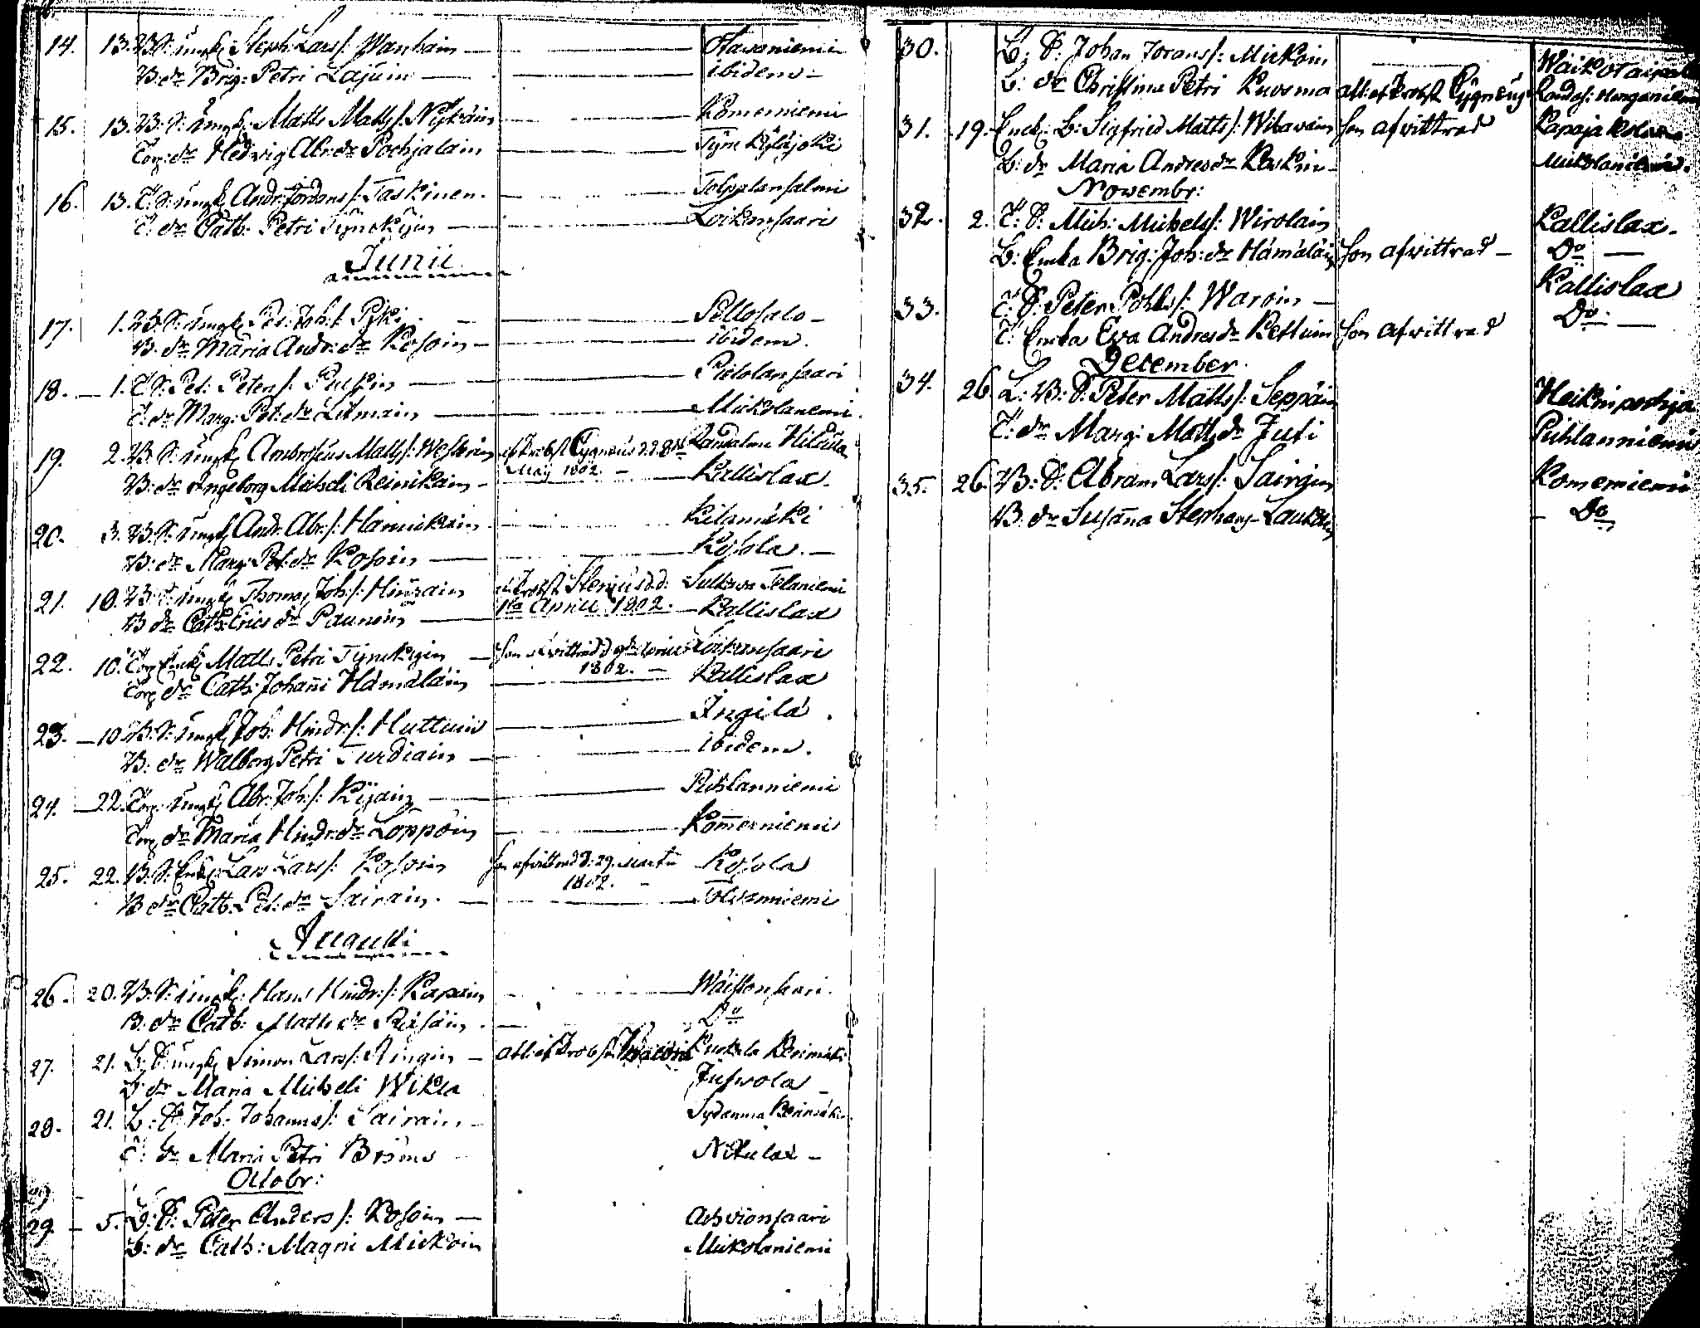 14. 13. B. S. ungk. Steph. Lars s: Wanhain Otavaniemi
B: dr Brig: Petri Lajuin ibidem
15. 13. B: S: ungk: Matts Matts s: Nykäin Komerniemi
Torp: dr Hedvig Abr: dr Pochjalain
16. 13. T: S: ungk Andr: Jordans s: Taskinen Tolpplansalmi
T. dr Cath: Petri Tynckyin Loikansaari
Junii
17. 1. B: S: ungk Pet: Joh: s: Pyki Pellosalo
B: dr Maria Andr: dr Kosoin ibidem.
18. 1. T: S: Pet: Peters s: Puskin Pietolansaari
T: dr Marg: Pet: dr Litmain Mickolaniemi
19. 2. B: S: ungk Ambrosius Matts s: Westerin af Probst Cygnæus d. 28 Randasalmi
May 1802.
B: dr Ingeborg Micheli Reinikain Kallislax
20. 3. B: S: ungk Andr. Abr: s: Hannickain Kilamäki
B: dr Marg: Pet: dr Kosoin Kosola
21. 10. B: S: ungk Thomas Joh: s: Hirwain af Probst Stenius d. Sulkava Telaniemi
1sta April 1802.
B dr Cath: Erics dr Paunoin Kallislax
22. 10. Torp Enkl Matts Petri Tynckyin Son afvittrad Loikansaari
1802.
Torp dr Cath: Johani Hämäläin Kallislax
23. 10. B: S: ungk Joh: Hindr: s: Huttuin Ingilä
B: dr Walborg Petri Turdiain ibidem.
24. 22. Torp: ungk Abr: Joh: s: Kijain Pihlanniemi
Torp dr Maria Hindr: dr Loppoin Komerniemi
25. 22. B. S: Enkl: Lars Lars s: Kosoin Son afvittrad d: 29. Martii Kosola
1802.
B dr Cath: Pet: dr Sairain Tolvanniemi
Augusti
26. 20. B: S: ungk: Hans Hindr: s: Kapain Wäistonsaari
B: dr Cath: Matts dr Räisäin Do
27. 21. L: S: ungk Simon Lars s: Ringin att: af Probst Kerimäki
L: dr Maria Micheli Wikla Jufvola
28. 21. L: S: Joh: Johanns s: Sairain Kerimäki
T: dr Maria Petri Broms Nikulax
Octobr:
29. 5. L: S: Peter Anders s: Kosoin Ahvionsaari
L: dr Cath: Magni Mickoin Mickolaniemi
30. L: S: Johan Jorans s: Mickoin
L: dr Christina Petri Kuosma att: af Probst Cygnæus
31. 19. Enkl: L: Sigfried Matts s: Wihavain Son afvittrad
L: dr Maria Andres dr Koskin Mickolaniemi
Novembr:
32. 2. T: S: Mich: Michels s: Wirolain Kallislax
L: Enka Brig: Joh: dr Hämäläin Son afvittrad Do
33. T: S: Peter Pohls s: Waroin Kallislax
T: Enka Eva Andres dr Kettuin Son afvittrad Do
December
34. 26. L: B: S: Peter Matts s: Seppäin Heikinpohja
T: dr Marg: Matts dr Juti Pihlanniemi
35. 26. B: S: Abram Lars s: Sairain Komerniemi
B: dr Susanna Stephans Laukain Do